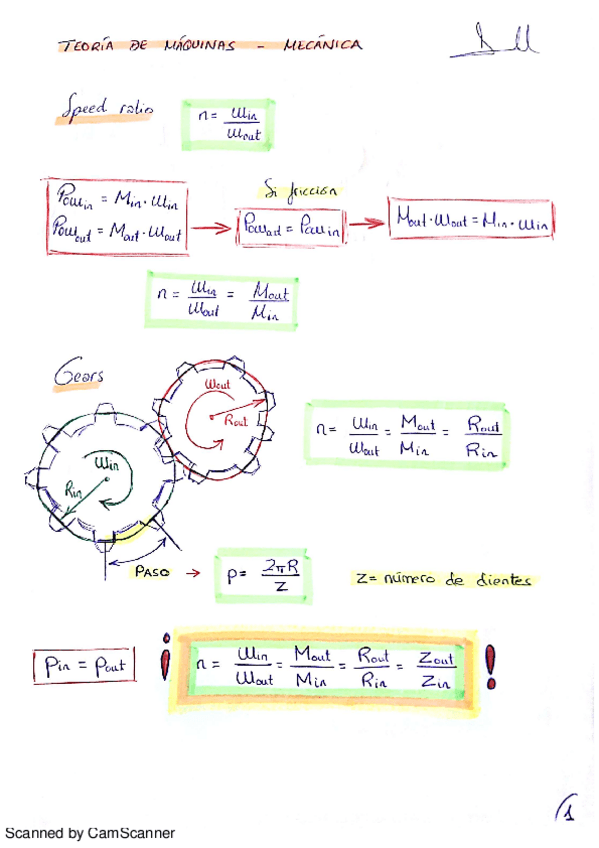 TEORÍA DE MÁQUINAS - MECÁNICA
Speed ratio n = ωin / ωout
Powin = Min · ωin
Powout = Mout · ωout
Si fricción
Powout = Powin
Mout · ωout = Min · ωin
n = ωin / ωout = Mout / Min
Gears
ωout
Rout
ωin
Rin
n = ωin / ωout = Mout / Min = Rout / Rin
PASO → p = 2πR / Z
Z = número de dientes
pin = pout
¡ n = ωin / ωout = Mout / Min = Rout / Rin = Zout / Zin !
1
Scanned by CamScanner